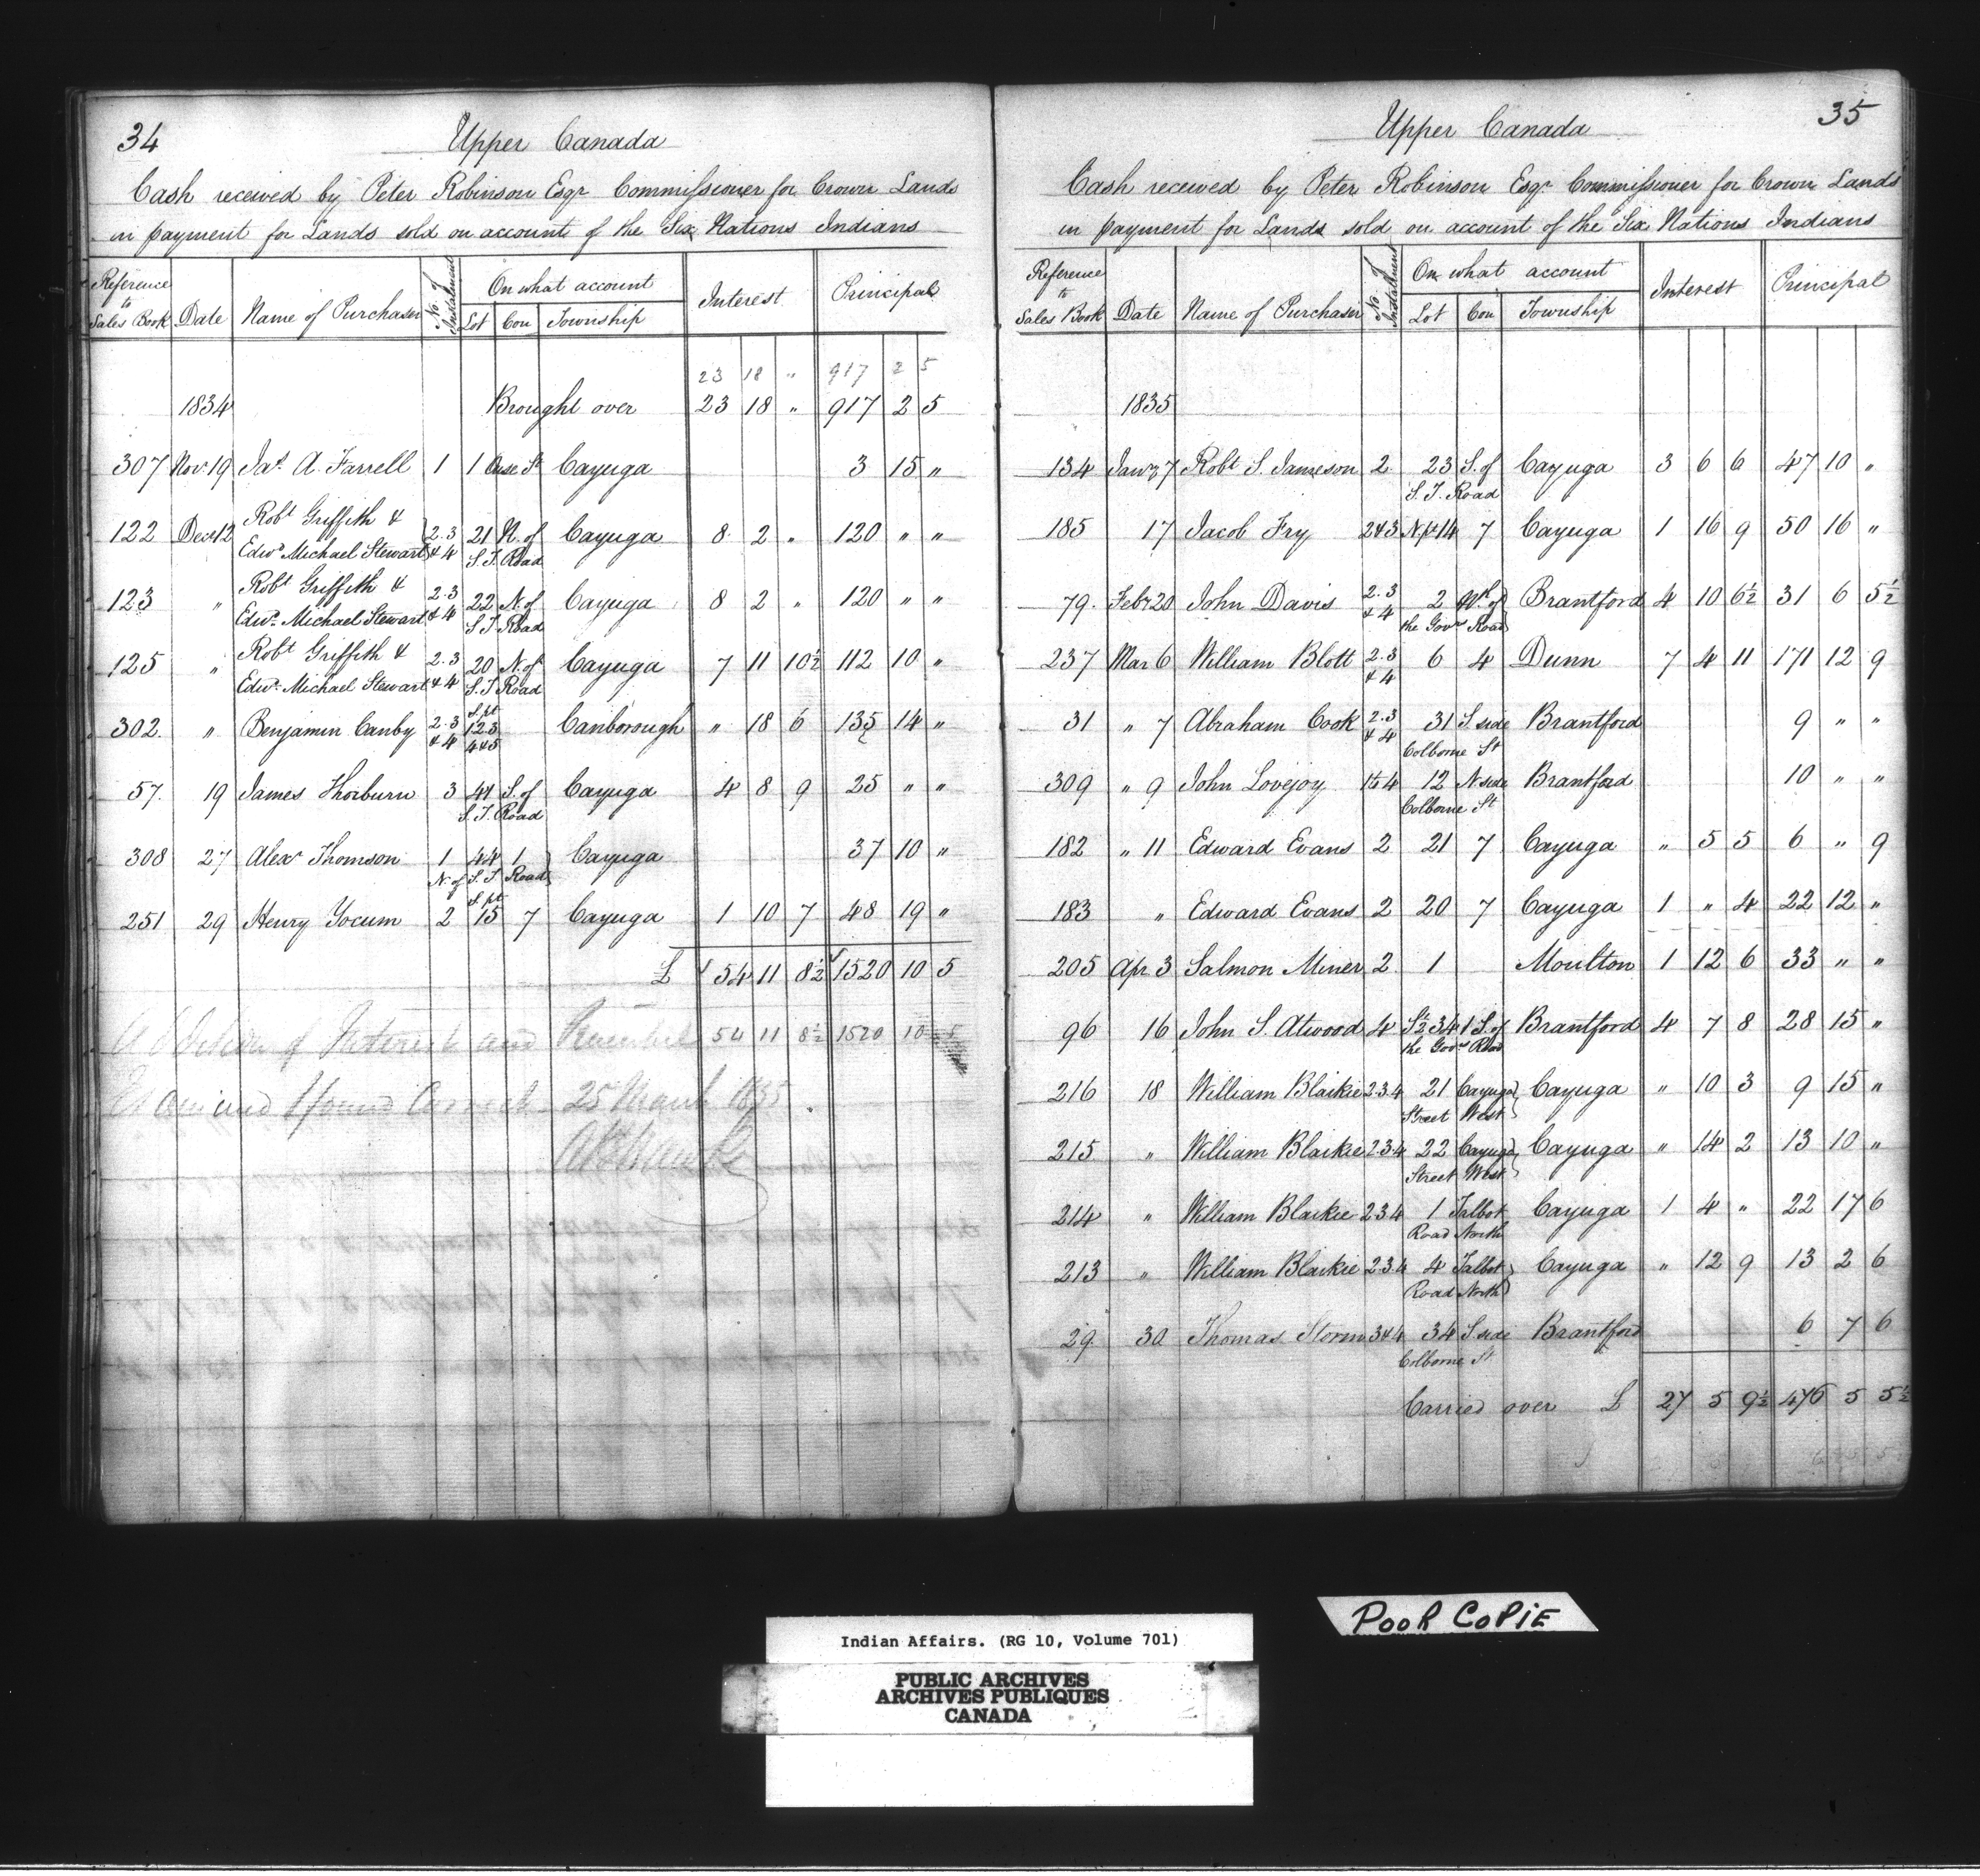 34
Upper Canada
Cash received by Peter Robinson Esqr Commissioner for Crown Lands
in payment for Lands sold on account of the Six Nations Indians
Reference to Sales Book | Date | Name of Purchaser | No. of Instalment | On what account | Interest | Principal
Lot | Con | Township
23 18 " 917 2 5
1834 Brought over 23 18 " 917 2 5
307 Novr 19 Jas. A. Farrell 1 1 Ouse St Cayuga 3 15 "
122 Decr 12 Robt Griffith & Edwd Michael Stewart 2.3 & 4 21 N. of S. T. Road Cayuga 8 2 " 120 " "
123 " Robt Griffith & Edwd Michael Stewart 2.3 & 4 22 N. of S. T. Road Cayuga 8 2 " 120 " "
125 " Robt Griffith & Edwd Michael Stewart 2.3 & 4 20 N. of S. T. Road Cayuga 7 11 10½ 112 10 "
302 " Benjamin Canby 2.3 & 4 S. pt 123 4&5 Canborough " 18 6 135 14 "
57 19 James Thorburn 3 41 S. of S. T. Road Cayuga 4 8 9 25 " "
308 27 Alexr Thomson 1 44 1 N. of S. T. Road Cayuga 37 10 "
251 29 Henry Yocum 2 S. pt 15 7 Cayuga 1 10 7 48 19 "
£ 54 11 8½ 1520 10 5
Addition of Interest and 54 11 8½ 1520 10 5
and found Correct 25 March 1835
35
Upper Canada
Cash received by Peter Robinson Esqr Commissioner for Crown Lands
in payment for Lands sold on account of the Six Nations Indians
Reference to Sales Book | Date | Name of Purchaser | No. of Instalment | On what account | Interest | Principal
Lot | Con | Township
1835
134 Janry 7 Robt S. Jameson 2 23 S. of S. T. Road Cayuga 3 6 6 47 10 "
185 17 Jacob Fry 2&3 N pt 14 7 Cayuga 1 16 9 50 16 "
79 Febr 20 John Davis 2.3 & 4 2 of the Govr Road Brantford 4 10 6½ 31 6 5½
237 Mar 6 William Blott 2.3 & 4 6 4 Dunn 7 4 11 171 12 9
31 " 7 Abraham Cook 2.3 & 4 31 S. side Colborne St Brantford 9 " "
309 " 9 John Lovejoy 1 to 4 12 N side Colborne St Brantford 10 " "
182 " 11 Edward Evans 2 21 7 Cayuga " 5 5 6 " 9
183 " Edward Evans 2 20 7 Cayuga 1 " 4 22 12 "
205 Apr 3 Salmon Miner 2 1 Moulton 1 12 6 33 " "
96 16 John S. Atwood 4 S½ 34 1 S. of the Govr Road Brantford 4 7 8 28 15 "
216 18 William Blaikie 2.3.4 21 Cayuga Street West Cayuga " 10 3 9 15 "
215 " William Blaikie 2.3.4 22 Cayuga Street West Cayuga " 14 2 13 10 "
214 " William Blaikie 2.3.4 1 Talbot Road North Cayuga 1 4 " 22 17 6
213 " William Blaikie 2.3.4 4 Talbot Road North Cayuga " 12 9 13 2 6
29 30 Thomas Storm 3&4 34 S side Colborne St Brantford 6 7 6
Carried over £ 27 5 9½ 476 5 5½
POOR COPIE
Indian Affairs. (RG 10, Volume 701)
PUBLIC ARCHIVES
ARCHIVES PUBLIQUES
CANADA